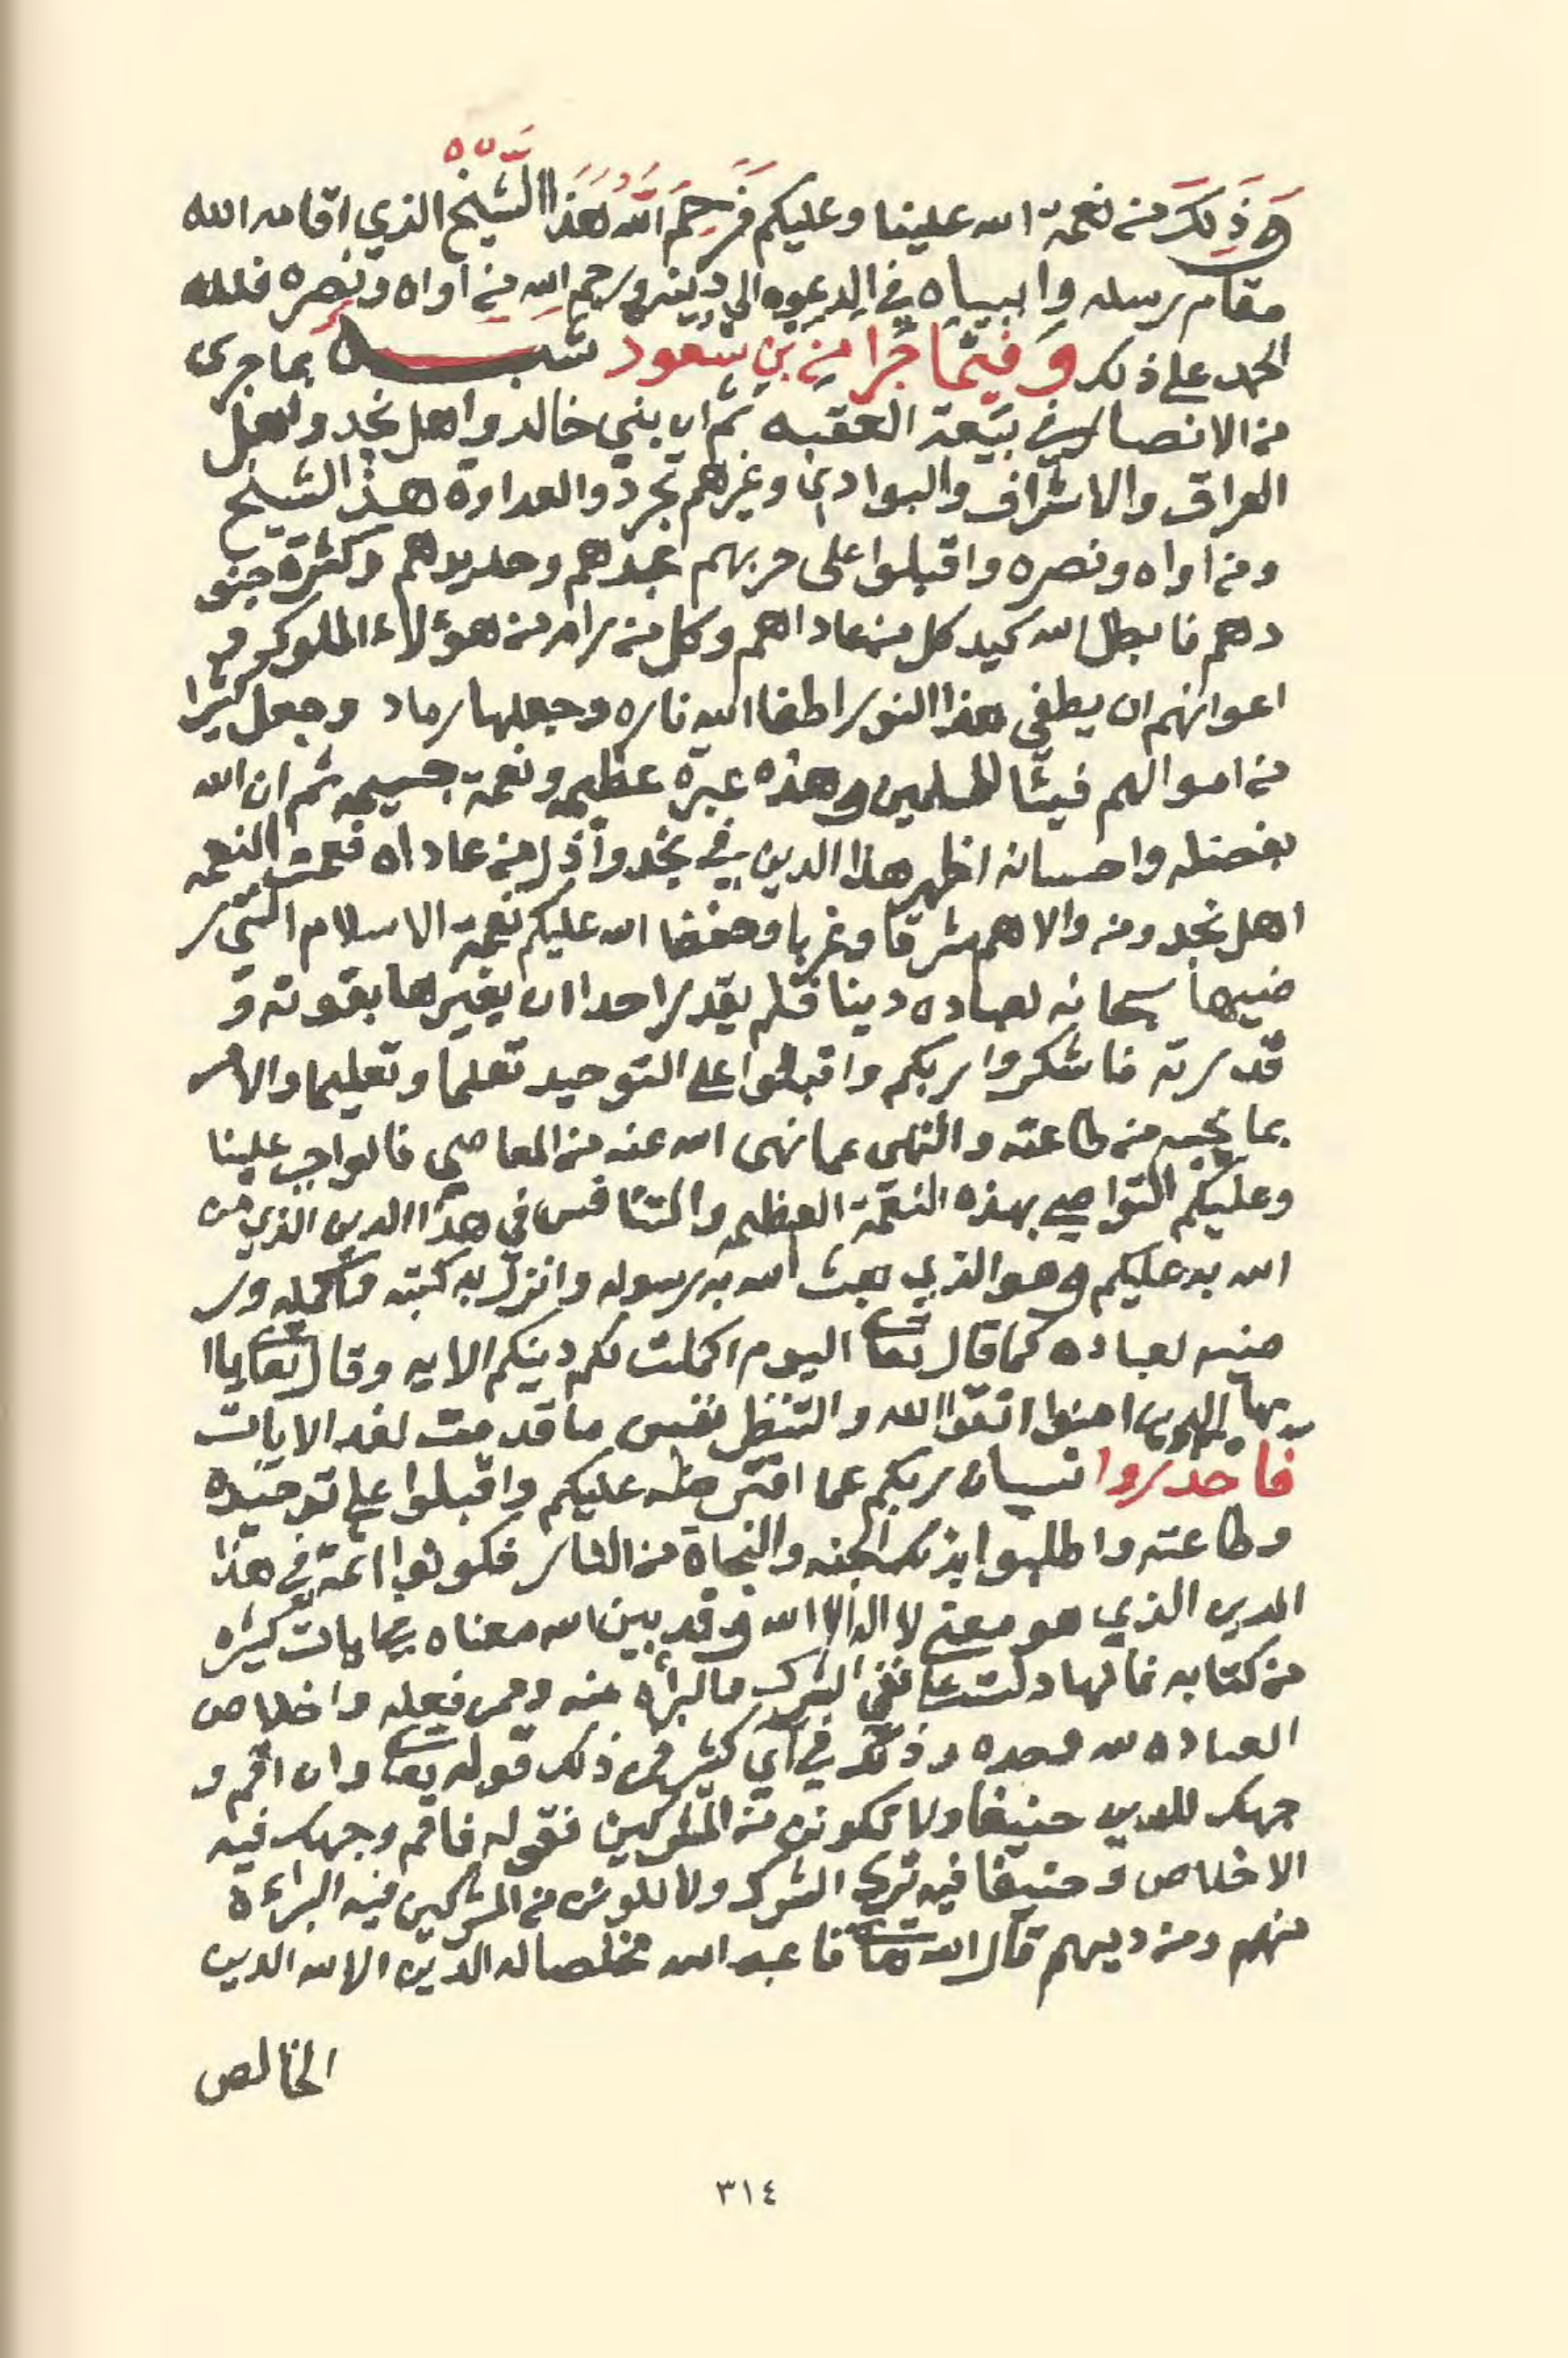 وذلك من نعمة الله علينا وعليكم فرحم الله هذا الشيخ الذي اقامه الله
مقام رسله وانبياه في الدعوه الى دينه ورحم الله من اواه ونصره فلله
الحمد على ذلك وفيما جرا من بن سعود شبه بما جرى
من الانصار في بيعة العقبه ثم ان بني خالد واهل نجد واهل
العراق والاشراف والبوادي وغيرهم تجردوا لعداوة هذ الشيخ
ومن اواه ونصره واقبلوا على حربهم بحدهم وحديدهم وكثرة جنو
دهم فابطل الله كيد كل من عاداهم وكل من رام من هؤلاء الملوك و
اعوانهم ان يطفي هذا النور اطفا الله ناره وجعلها رماد وجعل كثيرا
من اموالهم فيئا للمسلمين وهذه عبرة عظيمه ونعمة جسيمه ثم ان الله
بفضله واحسانه اظهر هذا الدين في نجد وأذل من عاداه فعمت النعمه
اهل نجد ومن والاهم شرقا وغربا وحفظ الله عليكم نعمة الاسلام التي ر
ضيها سبحانه لعباده دينا فلم يقدر احدا ان يغيرها بقوته و
قدرته فاشكروا ربكم واقبلوا على التوحيد تعلما وتعليما والامر
بما يحبه من طاعته والنهى عما نهى الله عنه من المعاصي فالواجب علينا
وعليكم التواصي بهذه النعمة العظيمه والتنافس في هذا الدين الذي من
الله به عليكم وهو الذي بعث الله به رسوله وانزل به كتبه فاكمله ور
ضيه لعباده كما قال تعا اليوم اكملت لكم دينكم الايه وقال تعا ياا
يها الذين امنوا اتقوا الله والتنظر نفس ما قدمت لغد الايات
فاحدروا نسيان ربكم عما افترضه عليكم واقبلوا على توحيده
وطاعته واطلبوا بذلك الجنه والنجاة من النار فكونوا ائمة في هذا
الدين الذي هو معنى لا اله الا الله وقد بين الله معناه بايات كثيره
من كتابه فانها دلت على نفي الشرك والبرأه منه وممن فعله واخلاص
العباده لله وحده وذلك في آي كثير من ذلك قوله تعا وان اقم و
جهك للدين حنيفا ولا تكونن من المشركين فقوله فاقم وجهك فيه
الاخلاص وحنيفا فيه ترك الشرك ولا تكونن من المشركين فيه البراءة
منهم ومن دينهم قال الله تعا فاعبد الله مخلصا له الدين الا لله الدين
الخالص
٣١٤